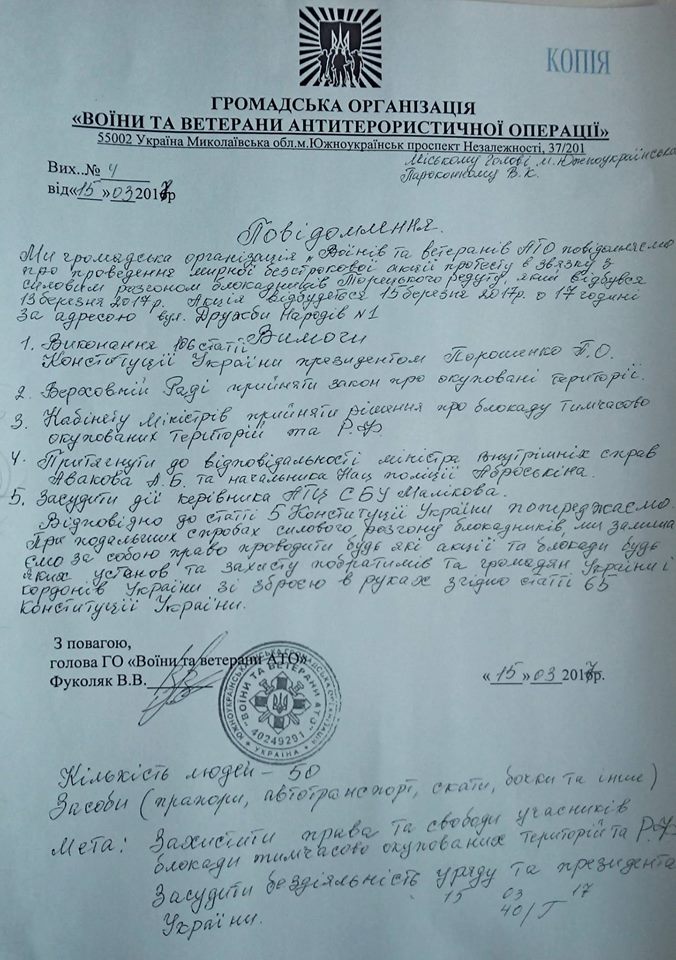 КОПІЯ
ГРОМАДСЬКА ОРГАНІЗАЦІЯ
«ВОЇНИ ТА ВЕТЕРАНИ АНТИТЕРОРИСТИЧНОЇ ОПЕРАЦІЇ»
55002 Україна Миколаївська обл.м.Южноукраїнськ проспект Незалежності, 37/201
Міському Голові м. Южноукраїнська
Пароконному В.К.
Вих..№ 4
від«15»03 2017р
Повідомлення.
Ми громадська організація „Воїнів та ветеранів АТО повідомляємо
про проведення мирної безстрокової акції протесту в звязку з
силовим разгоном блокадників Торецького редуту, який відбувся
13 березня 2017р. Акція відбудется 15 березня 2017р. о 17 годині
за адресою вул. Дружби Народів №1
Вимоги
1. Виконання 106 статті
Конституції України президентом Порошенко П.О.
2. Верховній Раді прийняти закон про окуповані території.
3. Кабінету Міністрів прийняти рішення про блокаду тимчасово
окупованих територій та Р.Ф.
4. Притягнути до відповідальності міністра внутрішніх справ
Авакова А.Б. та начальника Нац поліції Аброськіна.
5. Засудити дії керівника АТЦ СБУ Малікова.
Відповідно до статті 5 Конституції України попереджаємо.
При подальших спробах силового разгону блокадників, ми залиша
ємо за собою право проводити будь які акції та блокади будь
яких установ та захисту побратимів та громадян України і
кордонів України зі зброєю в руках згідно статті 65
Конституції України.
З повагою,
голова ГО «Воїни та ветерани АТО»
Фуколяк В.В.
«15»03 2017р.
ЮЖНОУКРАЇНСЬКА МІСЬКА ГРОМАДСЬКА ОРГАНІЗАЦІЯ
"ВОЇНИ ТА ВЕТЕРАНИ АТО"
40249291
УКРАЇНА
Кількість людей – 50
Засоби (прапори, автотранспорт, скати, бочки та інше)
Мета: Захистити права та свободи учасників
блокади тимчасово окупованих територій та Р.Ф.
Засудити бездіяльність уряду та президента
України.
15 03 17
40/Г